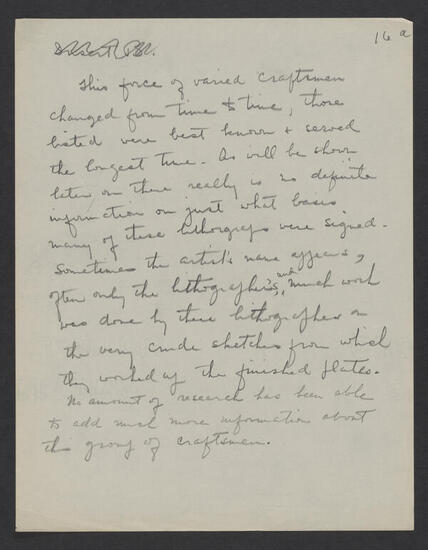 16a
This force of varied craftsmen
changed from time to time, those
listed were best known & served
the longest time. As will be shown
later on there really is no definite
information on just what basis
many of these lithographs were signed.
Sometimes the artist's name appears,
often only the lithographer's, and much work
was done by these lithographers on
the very crude sketches from which
they worked up the finished plates.
No amount of research has been able
to add much more information about
this group of craftsmen.